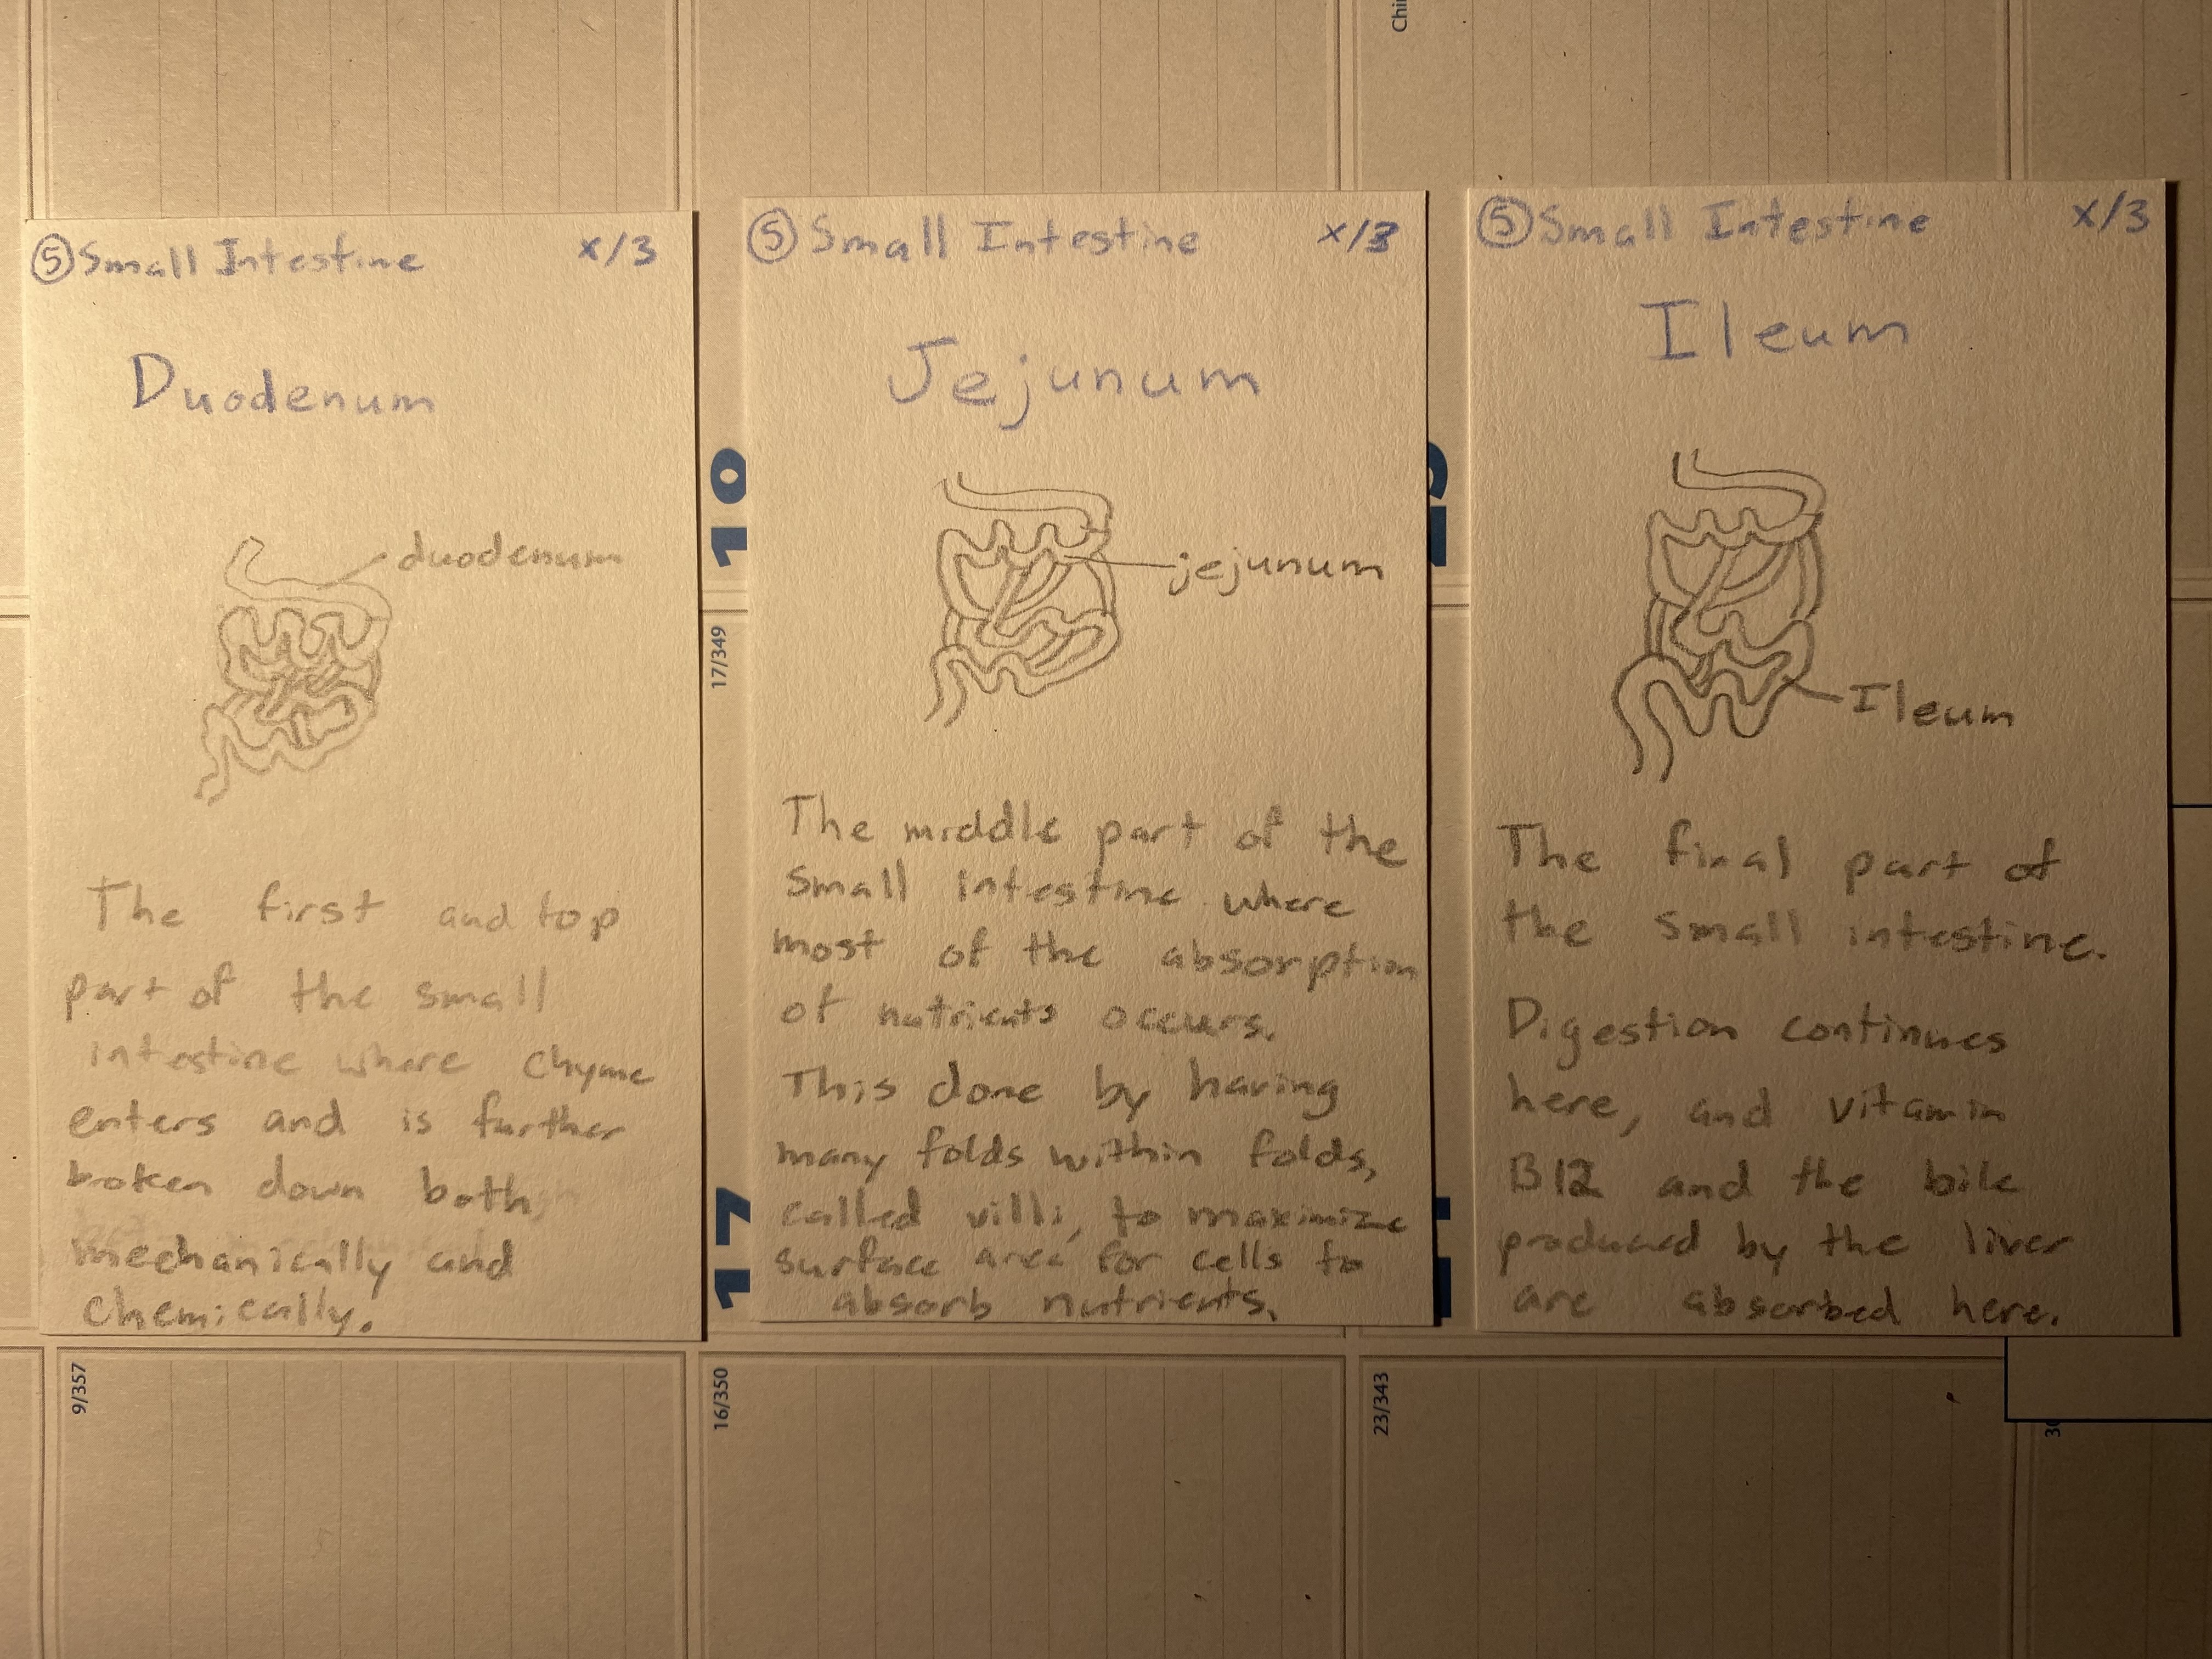 Chi
⑤ Small Intestine x/3
Duodenum
duodenum
The first and top
part of the small
intestine where chyme
enters and is further
broken down both
mechanically and
chemically.
⑤ Small Intestine x/3
Jejunum
jejunum
The middle part of the
small intestine where
most of the absorption
of nutrients occurs.
This done by having
many folds within folds,
called villi, to maximize
surface area for cells to
absorb nutrients.
⑤ Small Intestine x/3
Ileum
Ileum
The final part of
the small intestine.
Digestion continues
here, and vitamin
B12 and the bile
produced by the liver
are absorbed here.
17/349
17
9/357
16/350
23/343